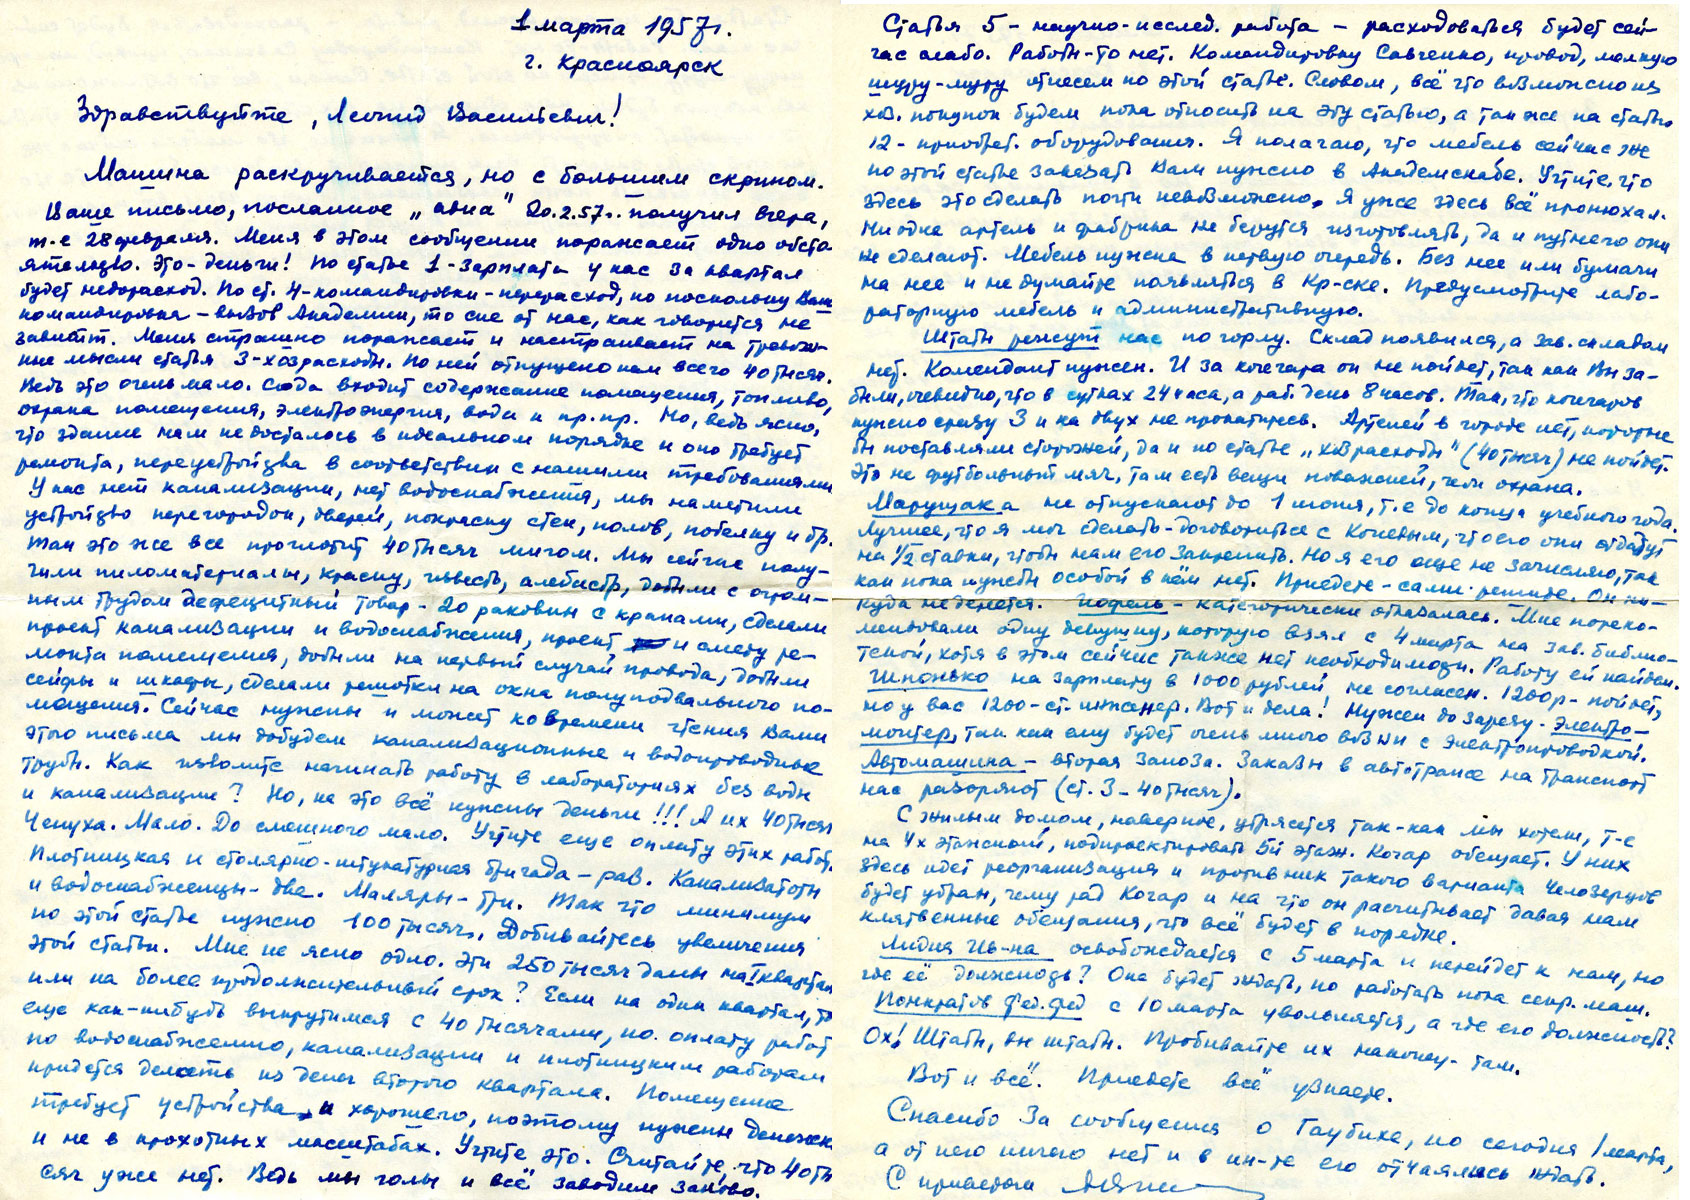 1 марта 1957г.
г. Красноярск
Здравствуйте, Леонид Васильевич!
Машина раскручивается, но с большим скрипом.
Ваше письмо, посланное „авиа" 20.2.57г. получил вчера,
т.е 28 февраля. Меня в этом сообщении поражает одно обсто
ятельство. Это - деньги! По статье 1 - зарплаты у нас за квартал
будет недорасход. По ст. 4 - командировки - перерасход, но поскольку Ваш
командировка - вызов Академии, то сие от нас, как говорится не
зависит. Меня страшно поражает и настраивает на тревож-
ные мысли статья 3 - хозрасходы. По ней отпущено нам всего 40 тысяч.
Ведь это очень мало. Сюда входит содержание помещения, топливо,
охрана помещения, электроэнергия, вода и пр. пр. Но, ведь ясно,
что здание нам не досталось в идеальном порядке и оно требует
ремонта, переустройства в соответствии с нашими требованиями
У нас нет канализации, нет водоснабжения, мы наметили
устройство перегородок, дверей, покраску стен, полов, побелку и др.
Так это же все проглотит 40 тысяч мигом. Мы сейчас полу-
чили пиломатериалы, краску, известь, алебастр, добыли с огром-
ным трудом дефецитный товар - 20 раковин с кранами, сделали
проект канализации и водоснабжения, проект и смету ре-
монта помещения, добыли на первый случай провода, добыли
сейфы и шкафы, сделали решотки на окна полуподвального по-
мещения. Сейчас нужны и может ко времени чтения Вами
этого письма мы добудем канализационные и водопроводные
трубы. Как изволите начинать работу в лабораториях без воды
и канализации? Но, на это всё нужны деньги!!! А их 40 тысяч
Чепуха. Мало. До смешного мало. Учтите еще оплату этих работ.
Плотницкая и столярно-штукатурная бригада - раз. Канализаторы
и водоснабженцы - два. Маляры - три. Так что минимум
по этой статье нужно 100 тысяч. Добивайтесь увеличения
этой статьи. Мне не ясно одно. Эти 250 тысяч даны на I квартал
или на более продолжительный срок? Если на один квартал, то
еще как-нибудь выкрутимся с 40 тысячами, но оплату работ
по водоснабжению, канализации и плотницким работам
придется делать из денег второго квартала. Помещение
требует устройства и хорошего, поэтому нужны денежк
и не в крохотных масштабах. Учтите это. Считайте, что 40 ты
сяч уже нет. Ведь мы голы и всё заводим заново.
Статья 5 - научно-исслед. работа - расходоваться будет сей-
час слабо. Работы-то нет. Командировку Савченко, провод, мелкую
шуру-муру отнесем по этой статье. Словом, всё что возможно из
хоз. покупок будем пока относить на эту статью, а также на статью
12 - приобрет. оборудования. Я полагаю, что мебель сейчас же
по этой статье заказать Вам нужно в Академснабе. Учтите, что
здесь это сделать почти невозможно. Я уже здесь всё пронюхал.
Ни одна артель и фабрика не берутся изготовлять, да и путнего они
не сделают. Мебель нужна в первую очередь. Без нее или бумаги
на нее и не думайте появляться в Кр-ске. Предусмотрите лабо-
раторную мебель и административную.
Штаты режут нас по горлу. Склад появился, а зав. складом
нет. Комендант нужен. И за кочегара он не пойдет, так как Вы за-
были, очевидно, что в сутках 24 часа, а раб. день 8 часов. Так, что кочегаров
нужно сразу 3 и на двух не прокатитесь. Артелей в городе нет, которые
бы поставляли сторожей, да и по статье „хозрасходы" (40 тысяч) не пойдет.
Это не футбольный мяч, там есть вещи поважней, чем охрана.
Марущака не отпускают до 1 июня, т.е до конца учебного года.
Лучшее, что я мог сделать - договориться с Коневым, что его они отдадут
на 1/2 ставки, чтобы нам его закрепить. Но я его еще не зачисляю, так
как пока нужды особой в нём нет. Приедете - сами решите. Он ни-
куда не денется. Иофель - категорически отказалась. Мне пореко-
мендовали одну девушку, которую взял с 4 марта на зав. библио-
текой, хотя в этом сейчас также нет необходимости. Работу ей найдем.
Шпонько на зарплату в 1000 рублей не согласен. 1200р - пойдет,
но у вас 1200 - ст. инженер. Вот и дела! Нужен до зарезу - электро-
монтер, так как ему будет очень много возни с электропроводкой.
Автомашина - вторая заноза. Заказы в автотрансе на транспорт
нас разоряют (ст. 3 - 40 тысяч).
С жилым домом, наверное, утрясется так-как мы хотели, т-е
на 4х этажный, подпроектировать 5й этаж. Кочар обещает. У них
здесь идет реорганизация и противник такого варианта Челозерцов
будет убран, чему рад Кочар и на что он расчитывает давая нам
клятвенные обещания, что всё будет в порядке.
Лидия Ив-на освобождается с 5 марта и перейдет к нам, но
где её должность? Она будет ждать, но работать пока секр. маш.
Понкратов Фед. Фед с 10 марта увольняется, а где его должность?
Ох! Штаты, вы штаты. Пробивайте их наконец - там.
Вот и всё. Приедете всё узнаете.
Спасибо за сообщения о Глубихе, но сегодня 1 марта,
а от него ничего нет и в ин-те его отчаялись ждать.
С приветом